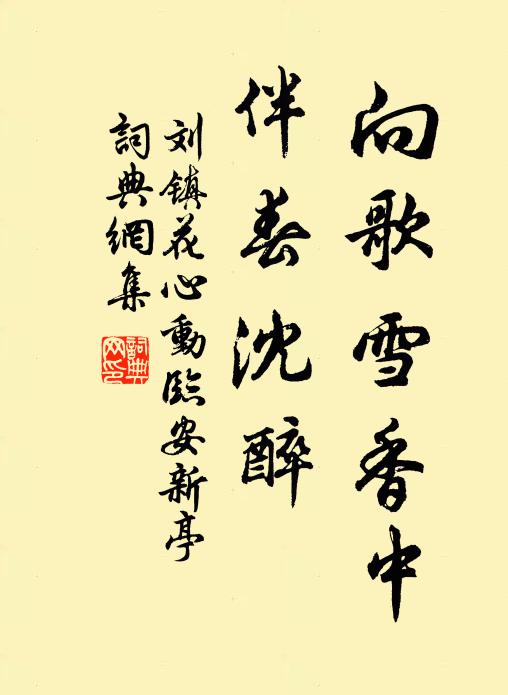 向歌雪香中
伴春沈醉
刘镇花心動臨安新亭
詞典網集
詞典
网印